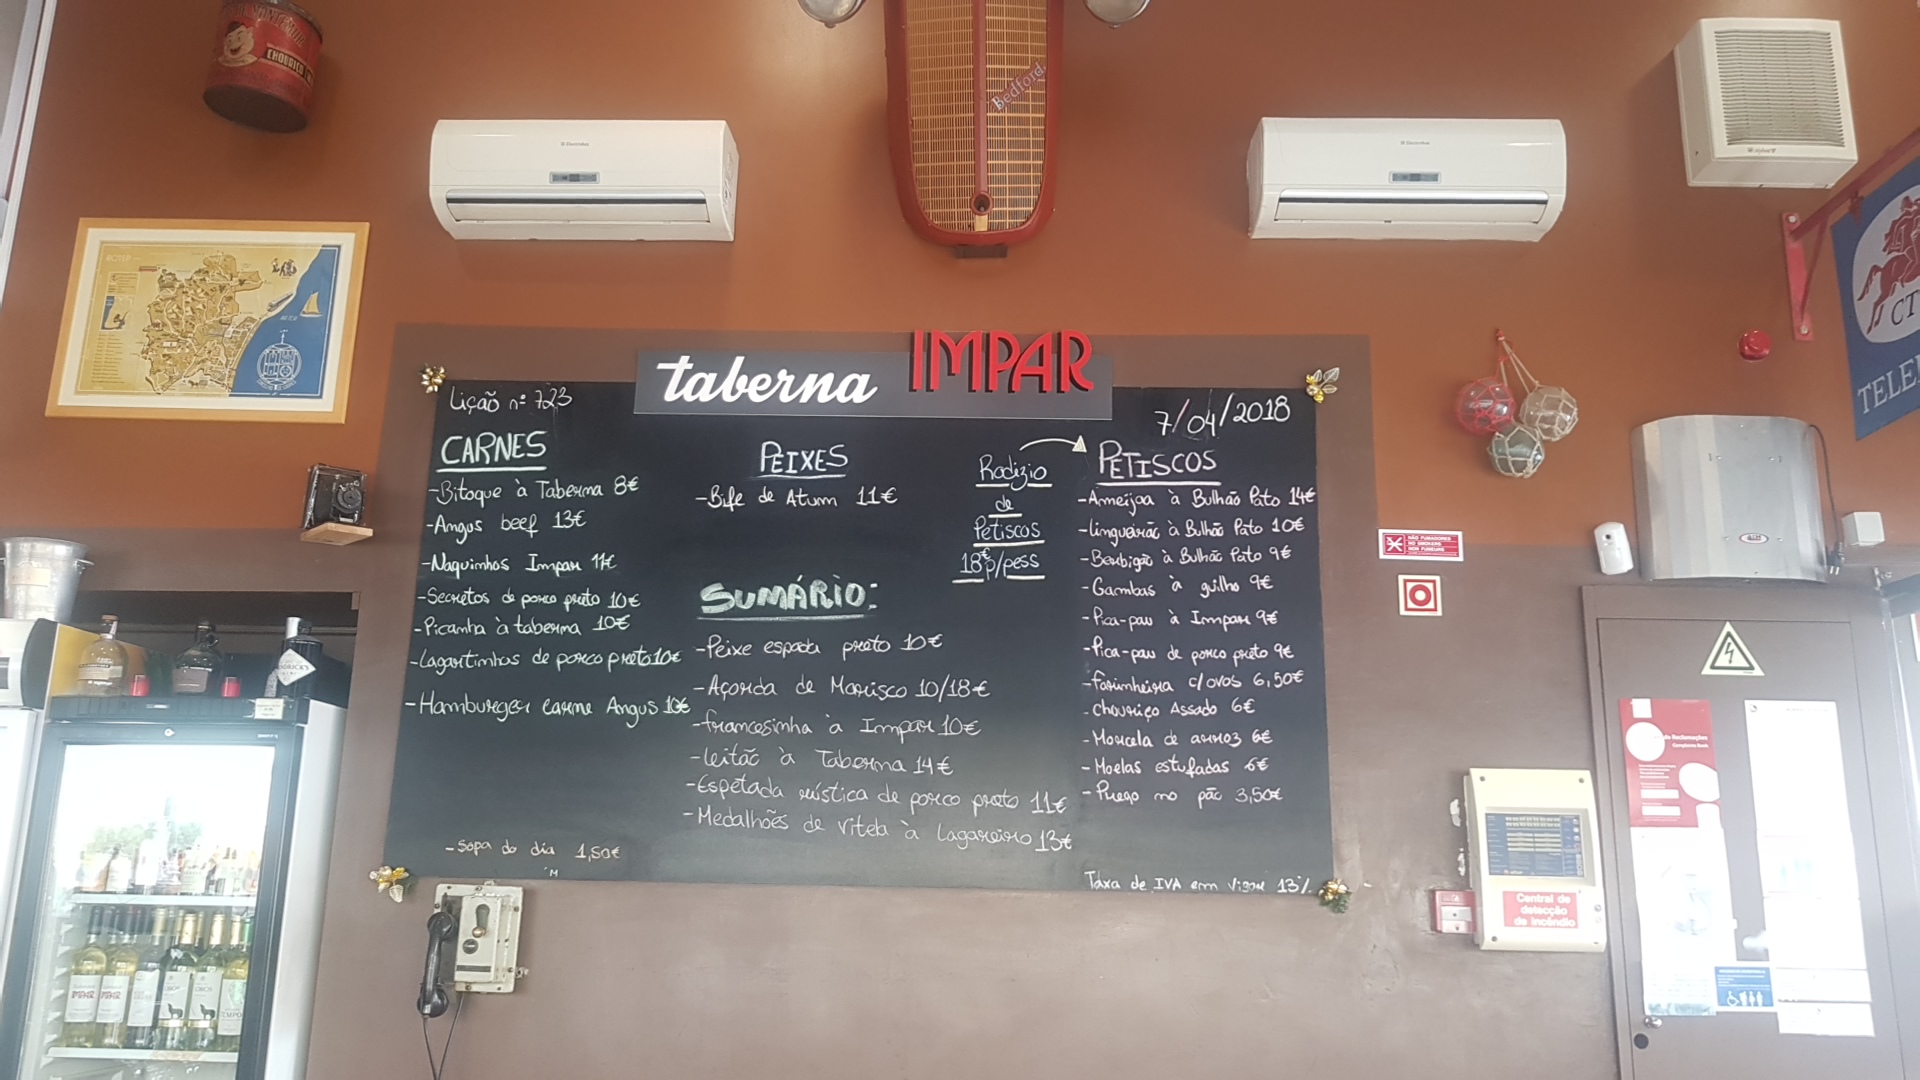 CHOURIÇO
Bedford
Electrolux
Electrolux
ROTEP
CT
TELE
taberna IMPAR
Lição nº 723
7/04/2018
CARNES
-Bitoque à Taberna 8€
-Angus beef 13€
-Naquinhos Impar 11€
-Secretos de porco preto 10€
-Picanha à taberna 10€
-Lagartinhos de porco preto 10€
-Hamburger carne Angus 10€
-Sopa do dia 1,50€
PEIXES
-Bife de Atum 11€
SUMÁRIO:
-Peixe espada preto 10€
-Açorda de Marisco 10/18€
-francesinha à Impar 10€
-Leitão à Taberna 14€
-Espetada rústica de porco preto 11€
-Medalhões de Vitela à Lagareiro 13€
Rodizio
de
Petiscos
18€ p/pess
PETISCOS
-Ameijoa à Bulhão Pato 14€
-Lingueirão à Bulhão Pato 10€
-Berbigão à Bulhão Pato 9€
-Gambas à guilho 9€
-Pica-pau à Impar 9€
-Pica-pau de porco preto 9€
-Farinheira c/ovos 6,50€
-Chouriço Assado 6€
-Morcela de arroz 6€
-Moelas estufadas 6€
-Prego no pão 3,50€
Taxa de IVA em Vigor 13%
NÃO FUMADORES
NO SMOKERS
NON FUMEURS
Central de
detecção
de incêndio
IMPAR
IMPAR